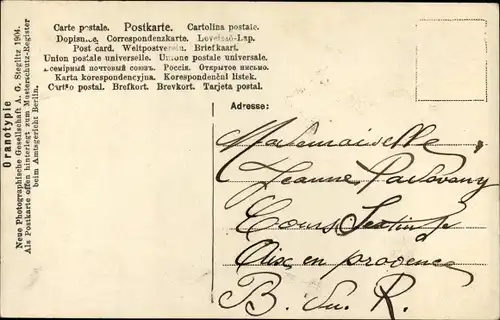 Carte postale. Postkarte. Cartolina postale.
Dopisnice. Correspondenzkarte. Levelező-Lap.
Post card. Weltpostverein. Briefkaart.
Union postale universelle. Unione postale universale.
Всемірный почтовый союзъ. Россія. Открытое письмо.
Karta korespondencyjna. Korespondenční listek.
Cartão postal. Brefkort. Brevkort. Tarjeta postal.
Oranotypie
Neue Photographische Gesellschaft A. G. Steglitz 1904.
Als Postkarte offen hinterlegt zum Musterschutz-Register
beim Amtsgericht Berlin.
Adresse:
Mademoiselle
Jeanne
Cours
Aix en provence
B. du R.